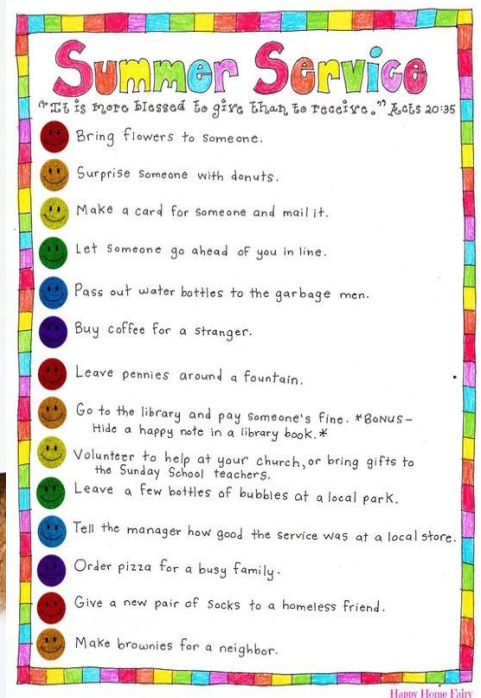 Summer Service
"It is more blessed to give than to receive." Acts 20:35
Bring flowers to someone.
Surprise someone with donuts.
Make a card for someone and mail it.
Let someone go ahead of you in line.
Pass out water bottles to the garbage men.
Buy coffee for a stranger.
Leave pennies around a fountain.
Go to the library and pay someone's fine. *BONUS-
Hide a happy note in a library book.*
Volunteer to help at your church, or bring gifts to
the Sunday School teachers.
Leave a few bottles of bubbles at a local park.
Tell the manager how good the service was at a local store.
Order pizza for a busy family.
Give a new pair of socks to a homeless friend.
Make brownies for a neighbor.
Happy Home Fairy